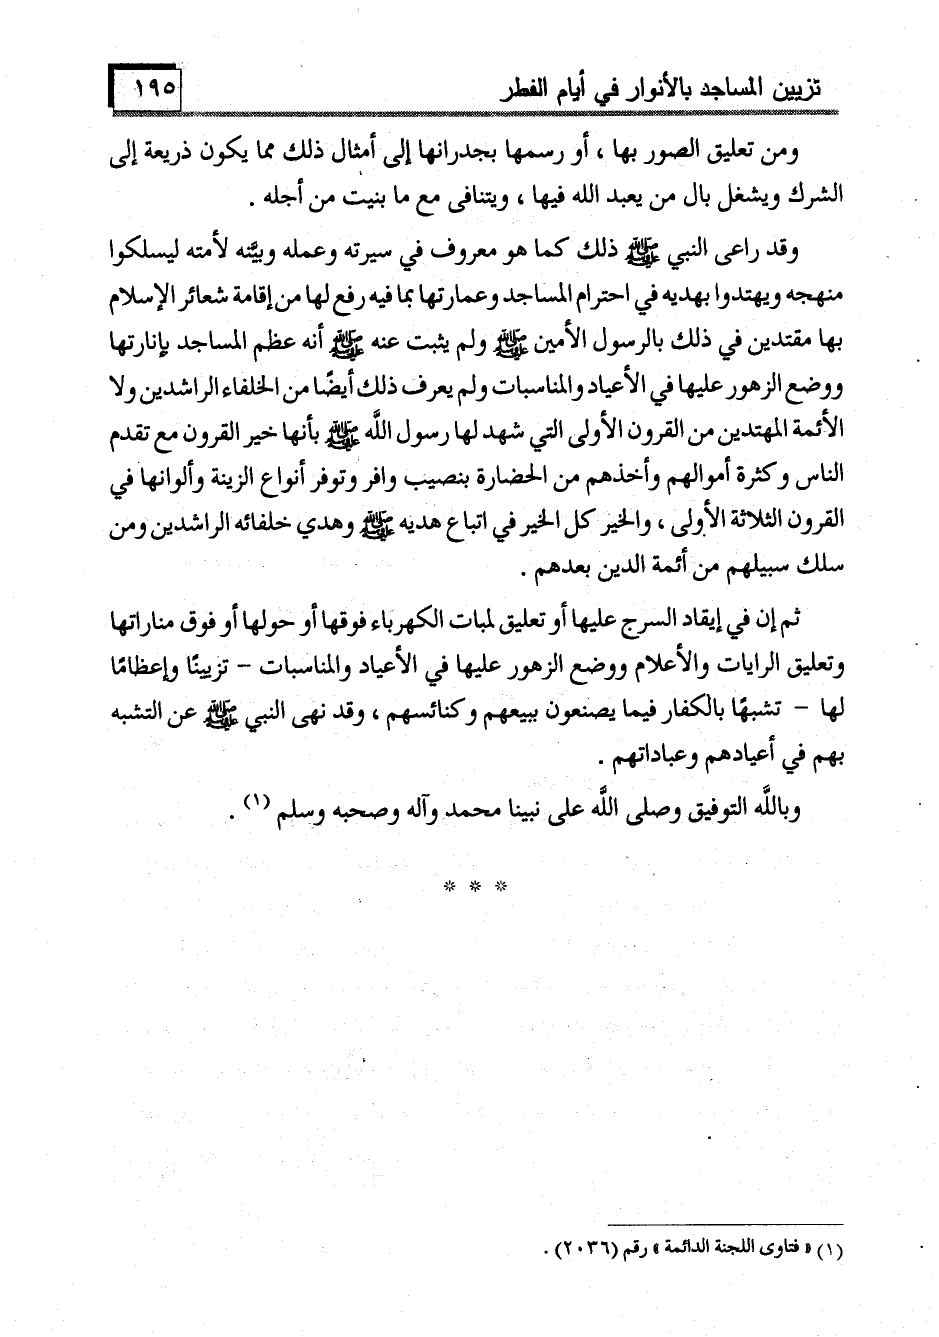 تزيين المساجد بالأنوار في أيام الفطر
١٩٥
ومن تعليق الصور بها ، أو رسمها بجدرانها إلى أمثال ذلك مما يكون ذريعة إلى
الشرك ويشغل بال من يعبد الله فيها ، ويتنافى مع ما بنيت من أجله .
وقد راعى النبي ﷺ ذلك كما هو معروف في سيرته وعمله وبيَّنه لأمته ليسلكوا
منهجه ويهتدوا بهديه في احترام المساجد وعمارتها بما فيه رفع لها من إقامة شعائر الإسلام
بها مقتدين في ذلك بالرسول الأمين ﷺ ولم يثبت عنه ﷺ أنه عظم المساجد بإنارتها
ووضع الزهور عليها في الأعياد والمناسبات ولم يعرف ذلك أيضًا من الخلفاء الراشدين ولا
الأئمة المهتدين من القرون الأولى التي شهد لها رسول اللَّه ﷺ بأنها خير القرون مع تقدم
الناس وكثرة أموالهم وأخذهم من الحضارة بنصيب وافر وتوفر أنواع الزينة وألوانها في
القرون الثلاثة الأولى ، والخير كل الخير في اتباع هديه ﷺ وهدي خلفائه الراشدين ومن
سلك سبيلهم من أئمة الدين بعدهم .
ثم إن في إيقاد السرج عليها أو تعليق لمبات الكهرباء فوقها أو حولها أو فوق مناراتها
وتعليق الرايات والأعلام ووضع الزهور عليها في الأعياد والمناسبات – تزيينًا وإعظامًا
لها – تشبهًا بالكفار فيما يصنعون ببيعهم وكنائسهم ، وقد نهى النبي ﷺ عن التشبه
بهم في أعيادهم وعباداتهم .
وباللَّه التوفيق وصلى اللَّه على نبينا محمد وآله وصحبه وسلم (١) .
* * *
(١) « فتاوى اللجنة الدائمة » رقم (٢٠٣٦) .